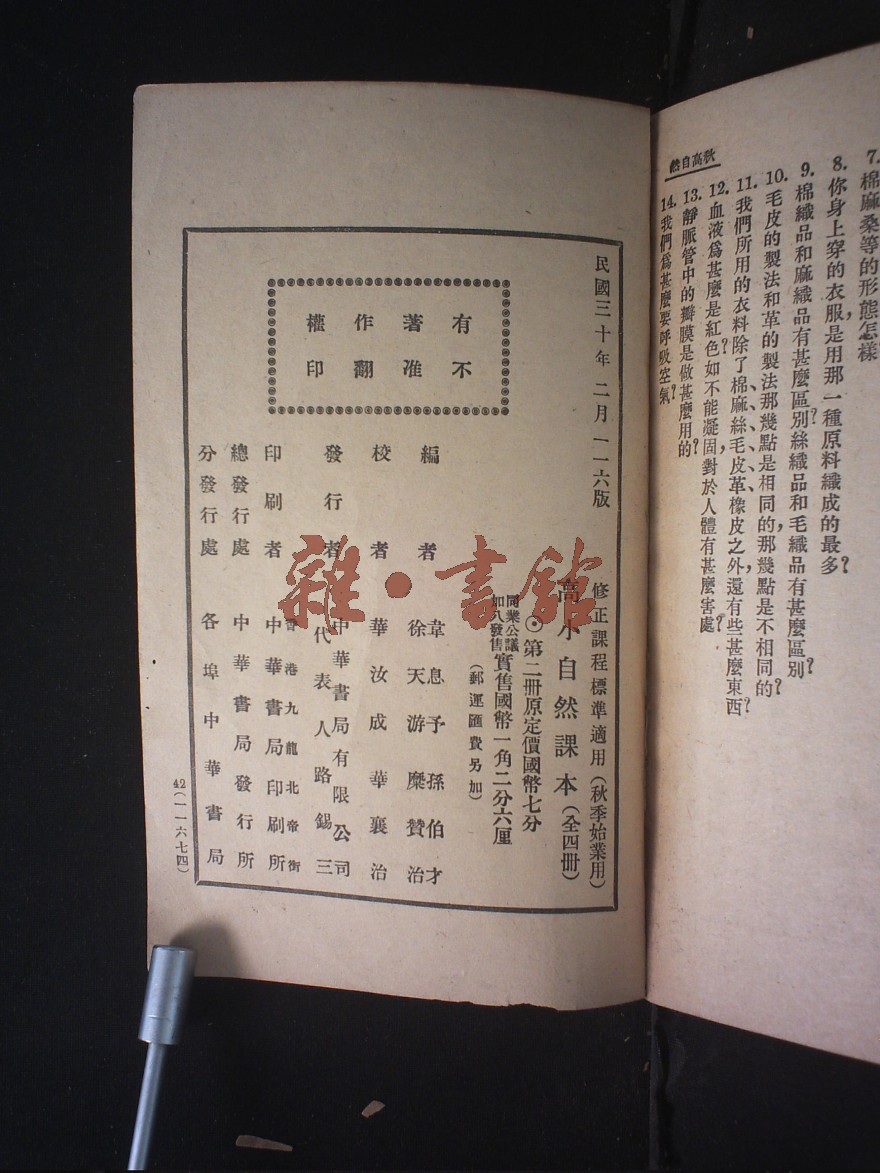 秋高自然
7. 棉麻桑等的形態怎樣
8. 你身上穿的衣服，是用那一種原料織成的最多？
9. 棉織品和麻織品有甚麼區別？絲織品和毛織品有甚麼區別？
10. 毛皮的製法和革的製法，那幾點是相同的，那幾點是不相同的？
11. 我們所用的衣料，除了棉、麻、絲、毛、皮、革、橡皮之外，還有些甚麼東西？
12. 血液爲甚麼是紅色？如不能凝固，對於人體有甚麼害處？
13. 靜脈管中的瓣膜是做甚麼用的？
14. 我們爲甚麼要呼吸空氣？
民國三十年二月一一六版
有著作權
不准翻印
修正課程標準適用（秋季始業用）
高小自然課本（全四冊）
◉第二冊原定價國幣七分
同業公議
加八發售
實售國幣一角二分六厘
（郵運匯費另加）
編者
韋息予 孫伯才
徐天游 糜贊治
校者 華汝成 華襄治
發行者
中華書局有限公司
代表人路錫三
印刷者
香港九龍北帝街
中華書局印刷所
總發行處 中華書局發行所
分發行處 各埠中華書局
42（一一六七四）
雜·書館